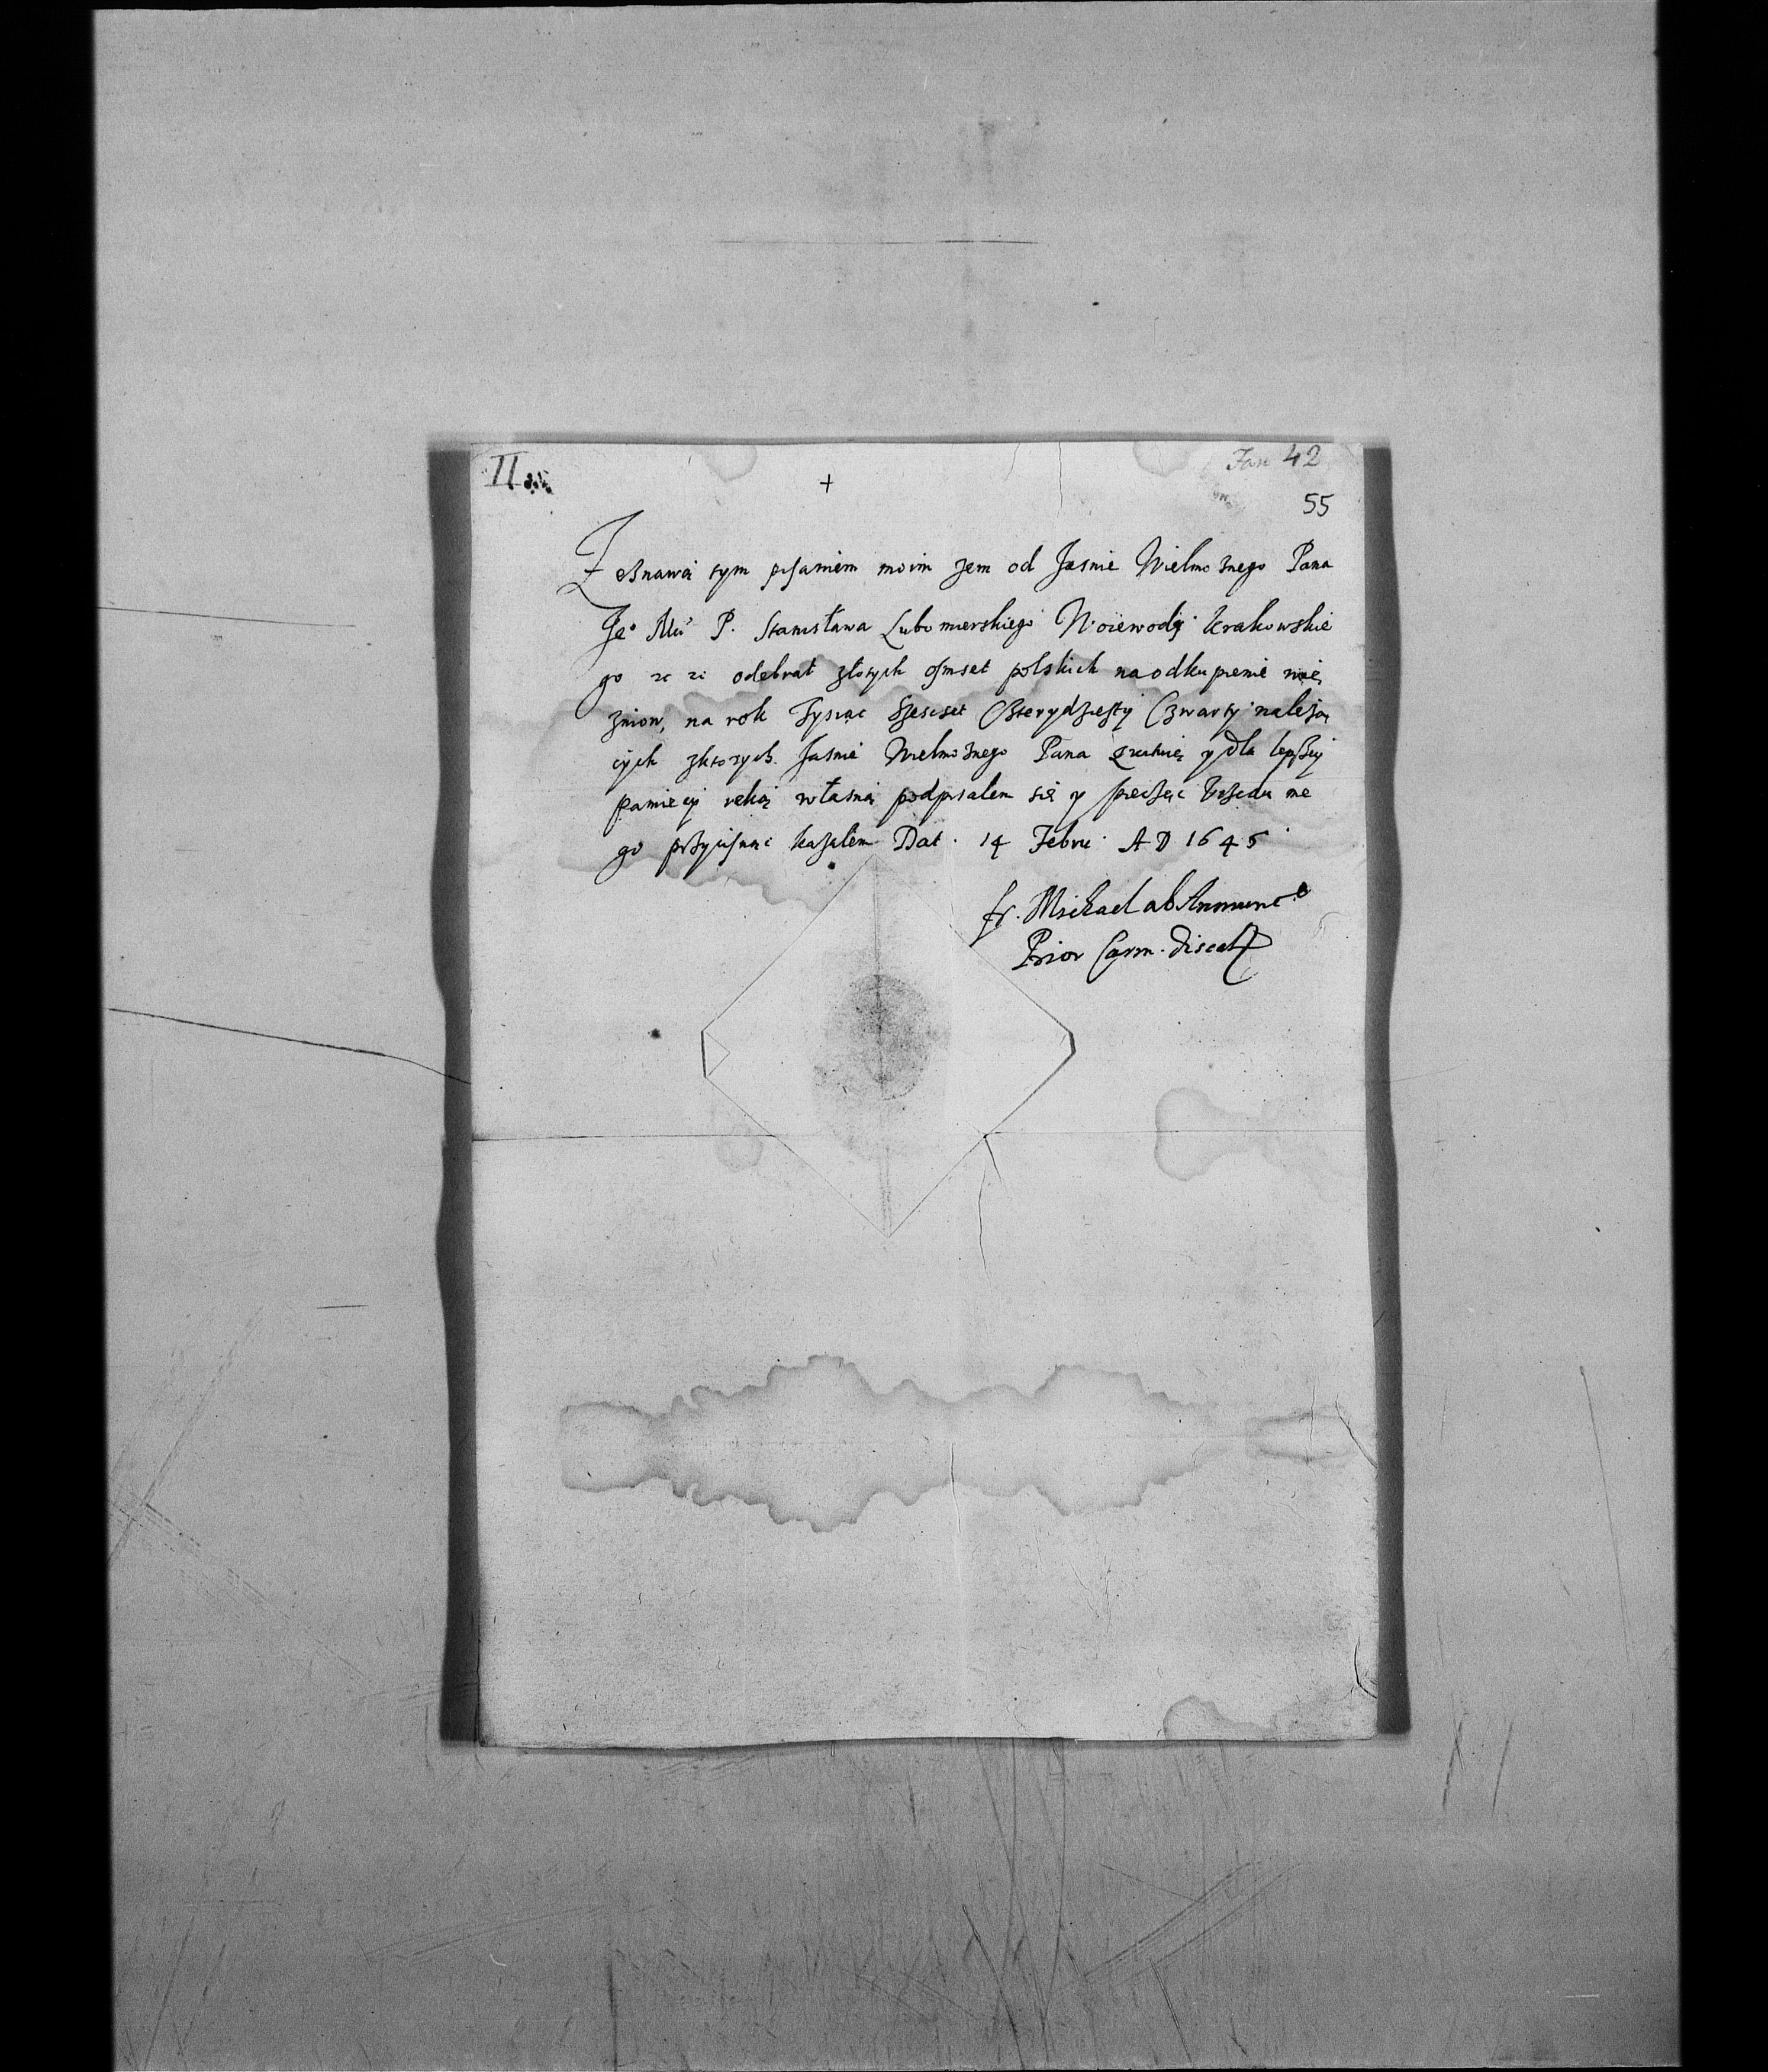 II
Jan 42
+
55
Zeznawą tym pisaniem moim zem od Jasnie Wielmożnego Pana
Je° Mći P. Stanisława Lubomierskiego Woiewody Krakowskie
go etc etc odebrał złotych osmset polskich na odkupienie więź
zniow, na rok Tysiąc Szescset Czterydziesty Czwarty należą
cych z ktorych Jasnie Wielmożnego Pana Quituię y dla lepszey
pamięci ręką własną podpisałem się y pieczęc Vrzędu me
go przycisnąc kazałem Dat. 14 Febru. AD 1645
fr. Michael ab Annunc.e
Prior Carm. discal